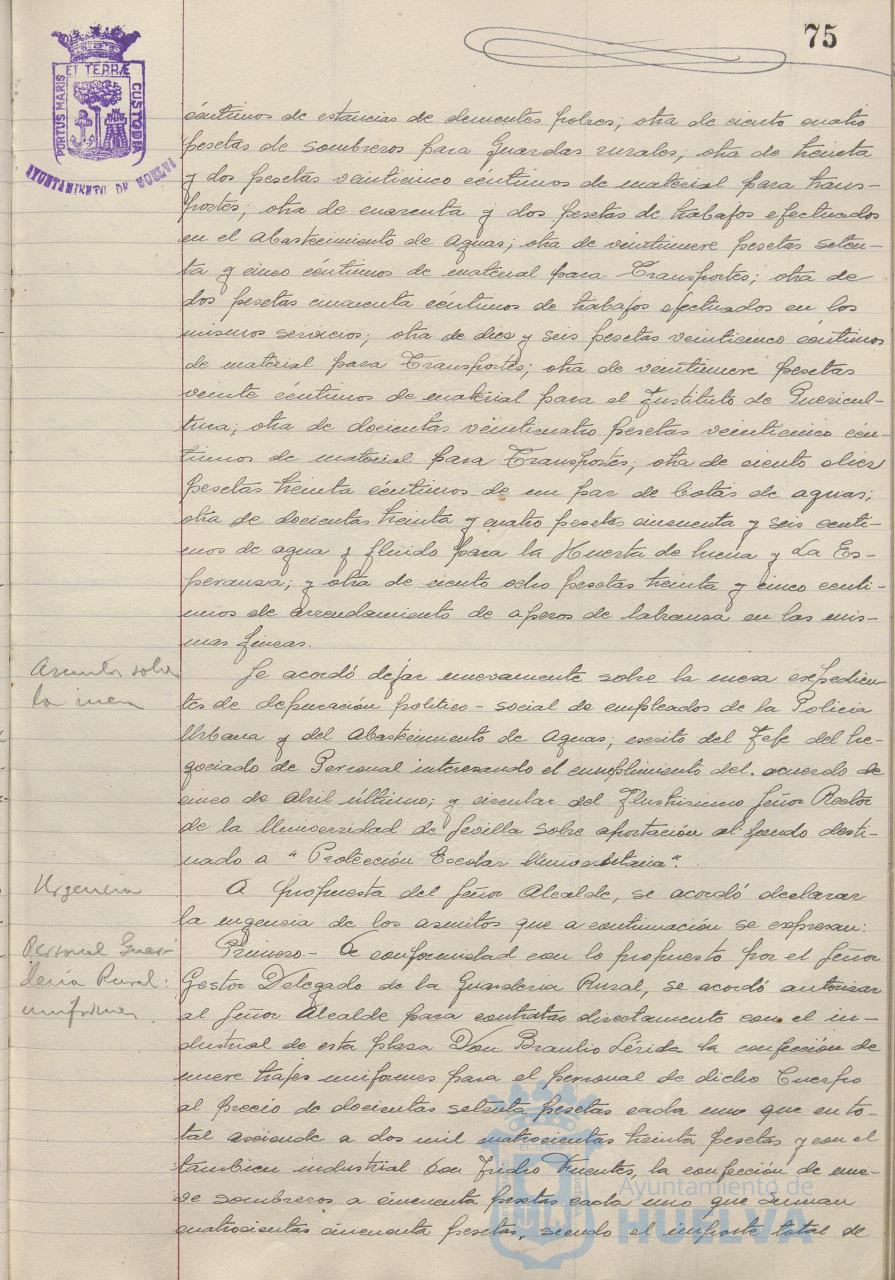 75
PORTUS MARIS ET TERRÆ CUSTODIA
AYUNTAMIENTO DE HUELVA
céntimos de estancias de dementes pobres; otra de ciento cuatro
pesetas de sombreros para Guardas rurales; otra de treinta
y dos pesetas veinticinco céntimos de material para trans-
portes; otra de cuarenta y dos pesetas de trabajos efectuados
en el Abastecimiento de Aguas; otra de veintinueve pesetas seten-
ta y cinco céntimos de material para Transportes; otra de
dos pesetas cincuenta céntimos de trabajos efectuados en los
mismos servicios; otra de diez y seis pesetas veinticinco céntimos
de material para Transportes; otra de veintinueve pesetas
veinte céntimos de material para el Instituto de Puericul-
tura; otra de docientas veinticuatro pesetas veinticinco cén-
timos de material para Transportes; otra de ciento diez
pesetas treinta céntimos de un par de botas de aguas;
otra de docientas treinta y cuatro pesetas cincuenta y seis centi-
mos de agua y fluido para la Huerta de Mena y La Es-
peranza; y otra de ciento ocho pesetas treinta y cinco centi-
mos de arrendamiento de aperos de labranza en las mis-
mas fincas.
Asuntos sobre
la mesa
Se acordó dejar nuevamente sobre la mesa expedien-
tes de depuración político-social de empleados de la Policia
Urbana y del Abastecimiento de Aguas; escrito del Jefe del Ne-
gociado de Personal interesando el cumplimiento del acuerdo de
cinco de Abril último; y circular del Ilustrisimo Señor Rector
de la Universidad de Sevilla sobre aportación al fondo desti-
nado a "Protección Escolar Universitaria".
Urgencia
A propuesta del Señor Alcalde, se acordó declarar
la urgencia de los asuntos que a continuación se expresan:
Personal Guar-
dería Rural:
uniformes
Primero.- De conformidad con lo propuesto por el Señor
Gestor Delegado de la Guarderia Rural, se acordó autorizar
al Señor Alcalde para contratar directamente con el in-
dustrial de esta plaza Don Braulio Lérida la confección de
nueve trajes uniformes para el personal de dicho Cuerpo
al precio de docientas setenta pesetas cada uno que en to-
tal asciende a dos mil cuatrocientas treinta pesetas y con el
tambien industrial Don Fuentes, la confección de nue-
ve sombreros a cincuenta pesetas cada uno que suman
cuatrocientas cincuenta pesetas, siendo el importe total de
Ayuntamiento de
HUELVA